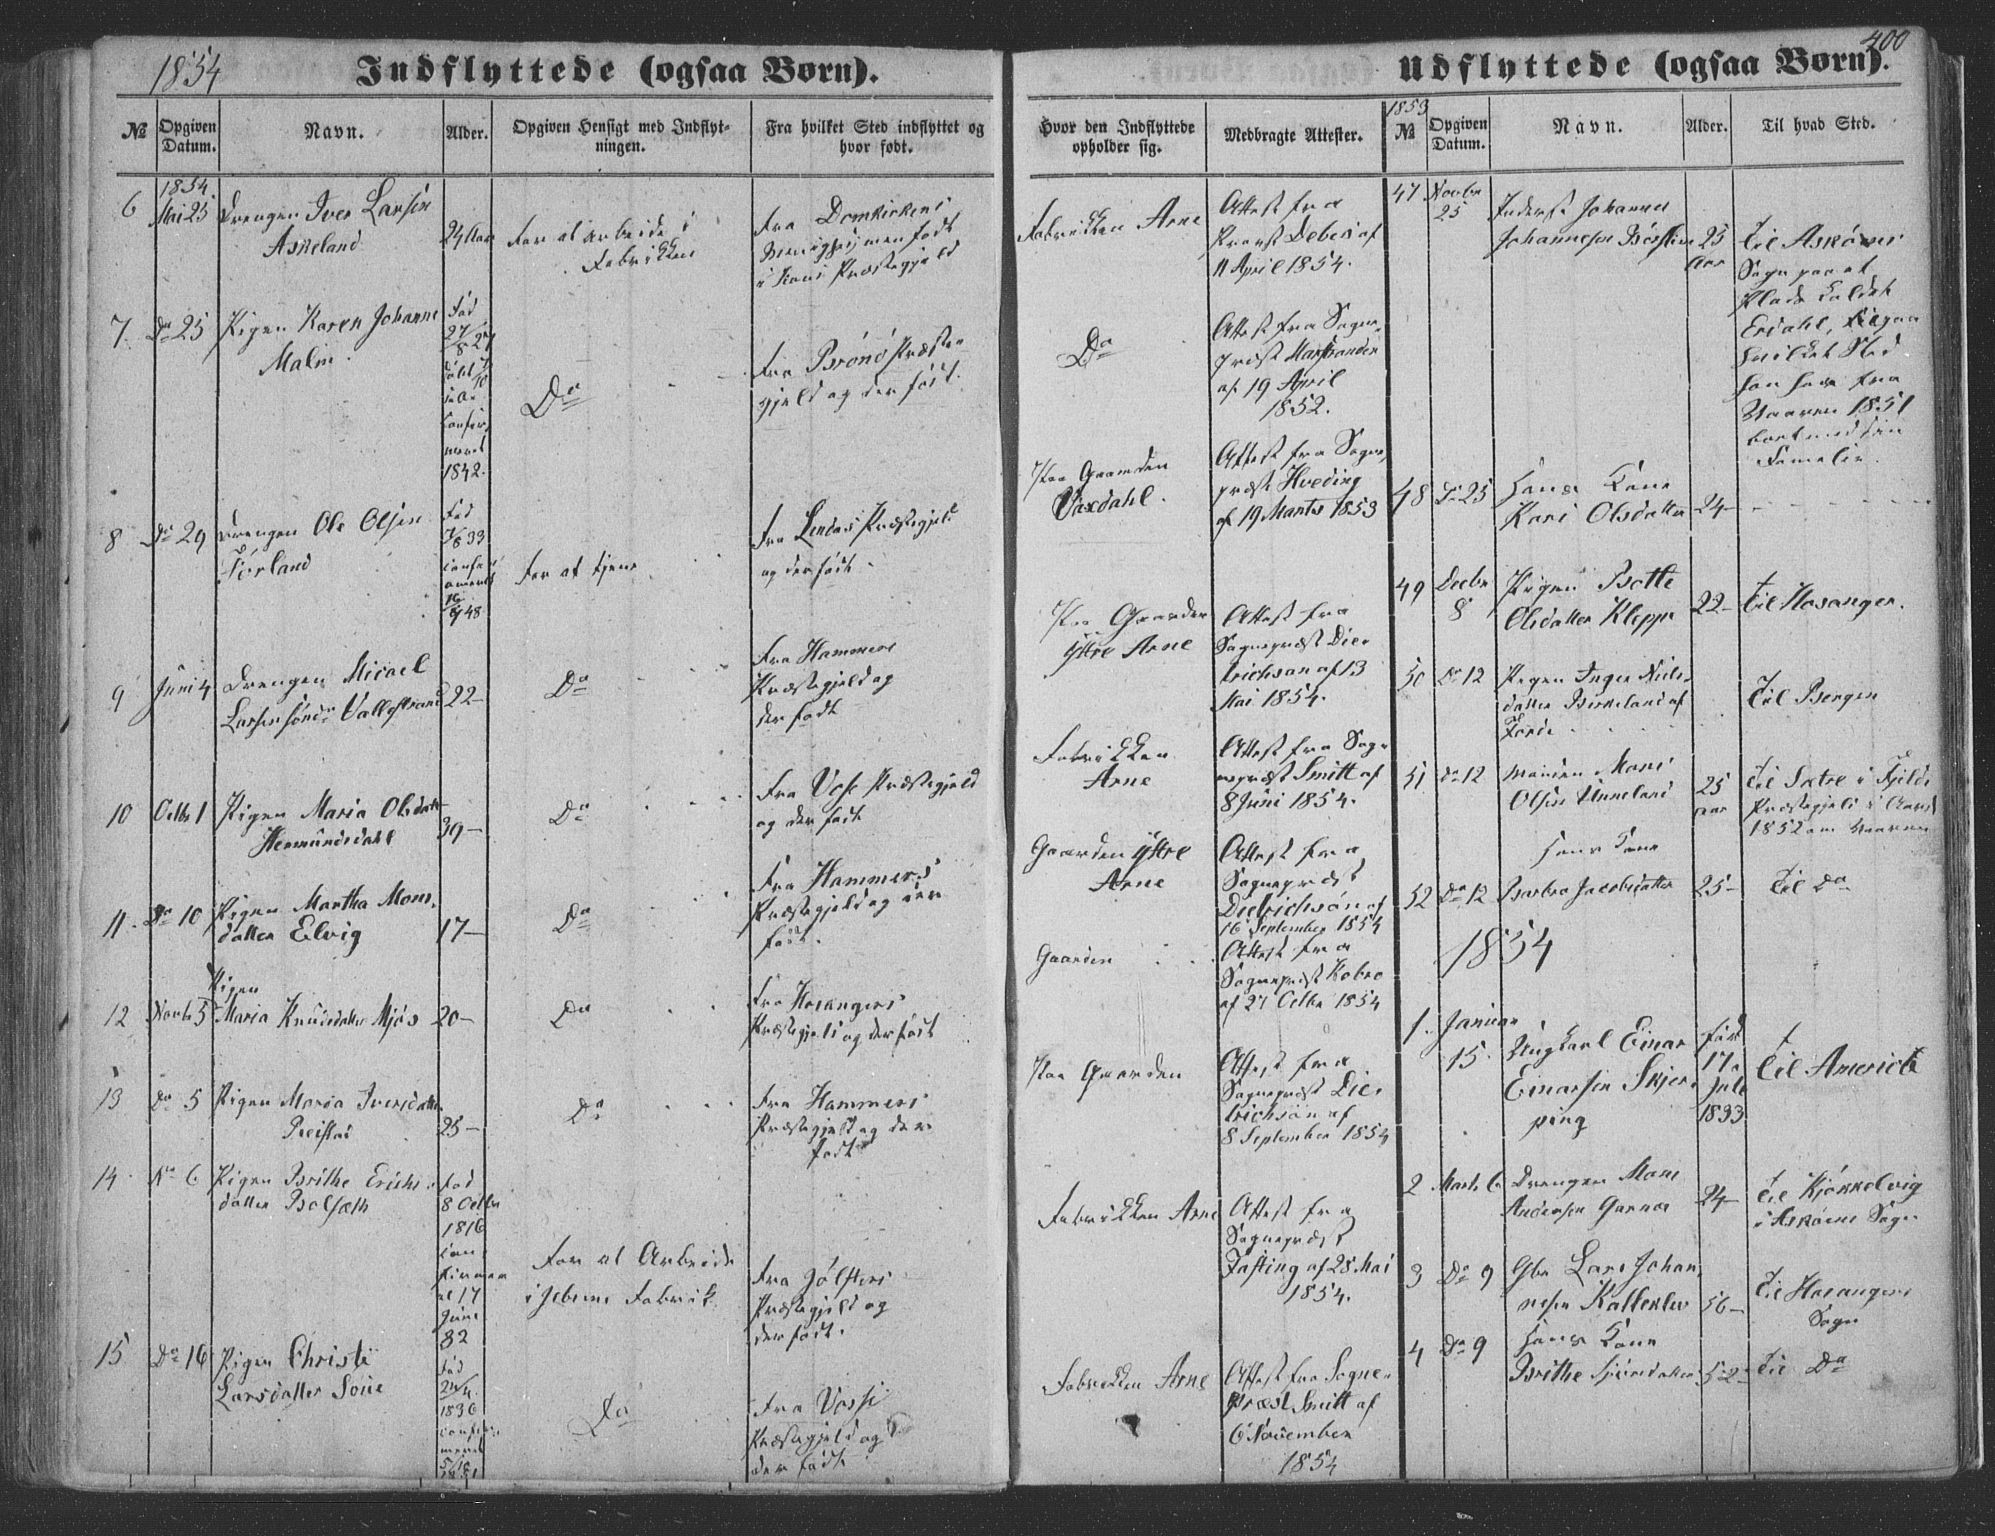 1854
Indflyttede (ogsaa Børn).
№
Opgiven Datum.
Navn.
Alder.
Opgiven Hensigt med Indflyt-
ningen.
Fra hvilket Sted indflyttet og
hvor født.
1854.
6 Mai 25 Drengen Iver Larsen
Askeland
24 Aar
For at arbeide i
Fabrikken
Fra Domkirkens
født
i Præstegjeld
7. Do 25 Pigen Karen Johanne
Malm.
Fød
27/8 27
confir-
meret
1842.
Do
Fra Brönö Præste-
gjeld og der født.
8 Do 29 Drengen Ole Olsen
Förland
Fød
33
48
For at tjene
Fra Lindaas Præstegjeld
og der født.
9 Juni 4 Drengen Micael
Larsen Vallestrand
22-
Do
Fra Hammers
Præstegjeld og
der født
10 Octbr 1 Pigen Maria Olsdatter
Hermundsdahl
39-
Do
Fra Voss Præstegjeld
og der født
11. Do 10 Pigen Martha Mons-
datter Elvig
17-
Do
Fra Hammers
Præstegjeld og der
født.
12 Novbr 5 Pigen
Maria Knudsdatter Mjøs
20-
Do
Fra Hosangers
Præstegjeld og der født
13 Do 5 Pigen Maria Iversdatter
25-
Do
Fra Hammers
Præstegjeld og der
født
14 Do 6 Pigen Brithe Erichs-
datter Bolsæth
Fød
8 Octbr
1816
con-
firmer-
et 17
Juni
32
For at Arbeide
i Fabrik
Fra Jölsters
Præstegjeld og
der født.
15 Do 16 Pigen Christi
Larsdatter Sone
Fød
1836
confir-
meret
Do
Fra Vosse
Præstegjeld og
der født
400
Udflyttede (ogsaa Børn).
Hvor den Indflyttede
opholder sig.
Medbragte Attester.
1853
№
Opgiven Datum.
Navn.
Alder.
Til hvad Sted.
Fabrikken Arne
Attest fra
Provst Debes af
11 April 1854.
Do
Attest fra Sogne-
præst Marstrander
af 19 April
1852.
Paa Gaarden
Vaxdahl.
Attest fra Sogne-
præst Hveding
af 19 Marts 1853
Paa Gaarden
Ystre Arne
Attest fra
Sognepræst Die-
trichson af 13
Mai 1854.
Fabrikken
Arne
Attest fra Sog-
nepræst Smitt af
8 Juni 1854.
Gaarden Ystre
Arne
Attest fra
Sognepræst
Dietrichsön af
16 September 1854
Gaarden
Attest fra
Sognepræst Kobro
af 27 Octbr 1854
Paa Gaarden
Attest fra
Sognepræst Die-
trichsön af
8 September 1854
Fabrikken Arne
Attest fra
Sognepræst
Fasting af 28 Mai
1854.
Fabrikken Arne
Attest fra Sogne-
præst Smitt af
6 November
1854
47 Novbr
25
Inderst Johannes
Johannesen
25
Aar
til Askøens
Sogn paa et
Plads kaldet
Erdahl, paa
hvilket Sted
han har fra
Vaaren 1851
boet med sin
Familie.
48 Do 25 Hans Kone
Kari Olsdatter
24-
49 Decbr
8
Pigen Botle
Olsdatter Kleppe
22-
til Hosanger.
50 Do 12 Pigen Inger Niels-
datter Birkeland af
Förde
til Bergen
51 Do 12 Manden Mons
Olsen Unneland
25
Aar
til i Fjelds
Præstegjeld i
1852 om Vaaren
52 Do 12 Hans Kone
Barbra Jacobsdatter
25-
til Do
1854
1. Januar
15.
Ungkarl Einar
Einarsen Skjer-
ping
Fød
17
Juli
1833
til America
2 Marts 6 Drengen Mons
Andersen Garnæs
24-
til Kjøkkelvig
i Askøens Sogn
3 Do 9 Gbr Lars Johan-
nesen
56-
til Hosangers
Sogn
4 Do 9 Hans Kone
Brithe
52-
til Do